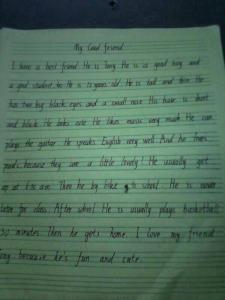 My Good friend
I have a best friend. He is Tony. He is a good boy and
a good student. he He is 13 years old. He is tall and thin. He
has two big black eyes and a small nose. His hair is short
and black. He looks cute. He likes music very much. He can
plays the guitar. He speaks English very well. And he likes
because they are a little lovely! He usually get
up at o'clock. Then he by bike to school. He is never
later for class. After school. He is usually plays basketball
30 minutes. Then he gets home. I love my friend
Tony. because he's fun and cute.